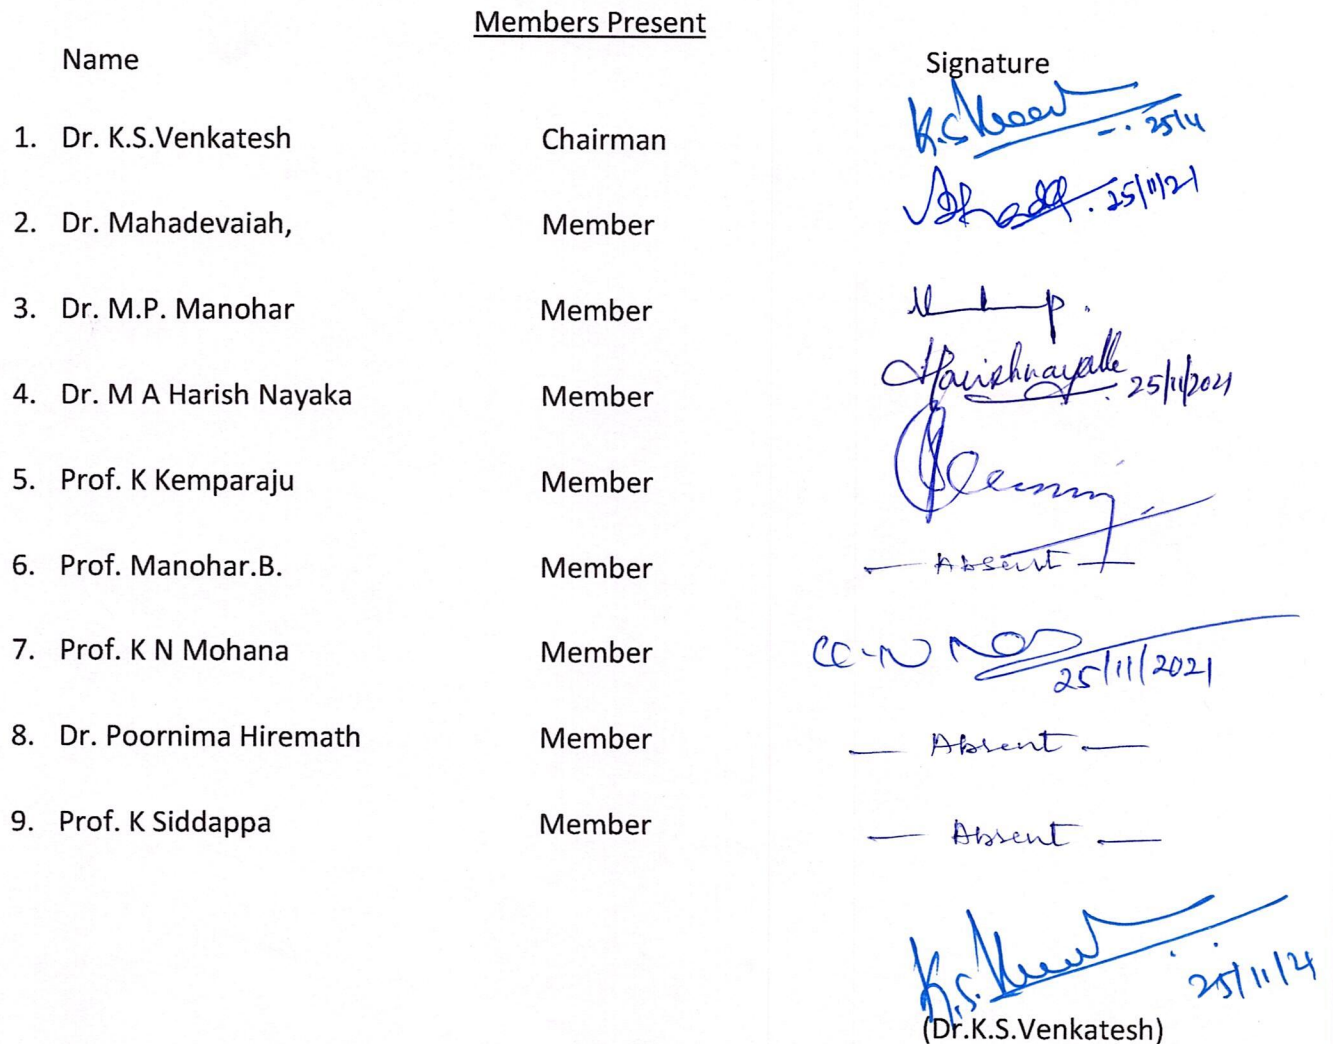 Members Present
Name Signature
1. Dr. K.S.Venkatesh Chairman K.S. 25/11
2. Dr. Mahadevaiah, Member 25/11/21
3. Dr. M.P. Manohar Member
4. Dr. M A Harish Nayaka Member Harishnayaka 25/11/2021
5. Prof. K Kemparaju Member
6. Prof. Manohar.B. Member — Absent —
7. Prof. K N Mohana Member 25/11/2021
8. Dr. Poornima Hiremath Member — Absent —
9. Prof. K Siddappa Member — Absent —
K.S. 25/11/21
(Dr.K.S.Venkatesh)